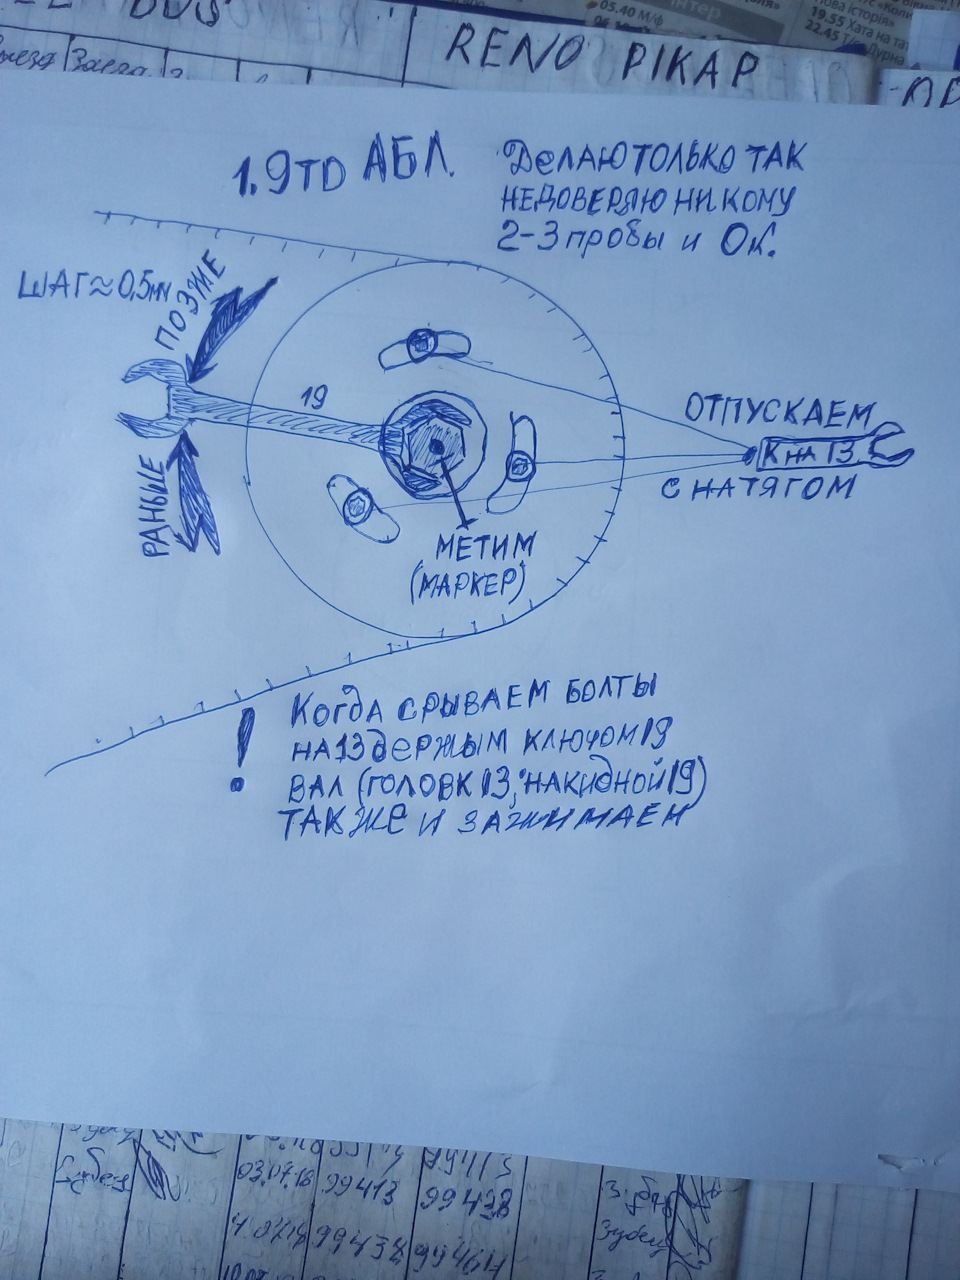 RENO PIKAP
05.40 М/ф
нтер
19.55 Хата на та
22.45 Т/с
1.9TD АБЛ.
ДЕЛАЮ ТОЛЬКО ТАК
НЕДОВЕРЯЮ НИ КОМУ
2-3 пробы и Ок.
ШАГ≈0,5мм
ПОЗЖЕ
19
РАНЬШЕ
ОТПУСКАЕМ
К НА 13
С НАТЯГОМ
МЕТИМ
(МАРКЕР)
! КОГДА СРЫВАЕМ БОЛТЫ
НА 13 ДЕРЖЫМ КЛЮЧОМ 19
ВАЛ (ГОЛОВК 13, НАКИДНОЙ 19)
ТАК ЖЕ И ЗАЖИМАЕМ
03.07.18 99413 99438
99438 99464